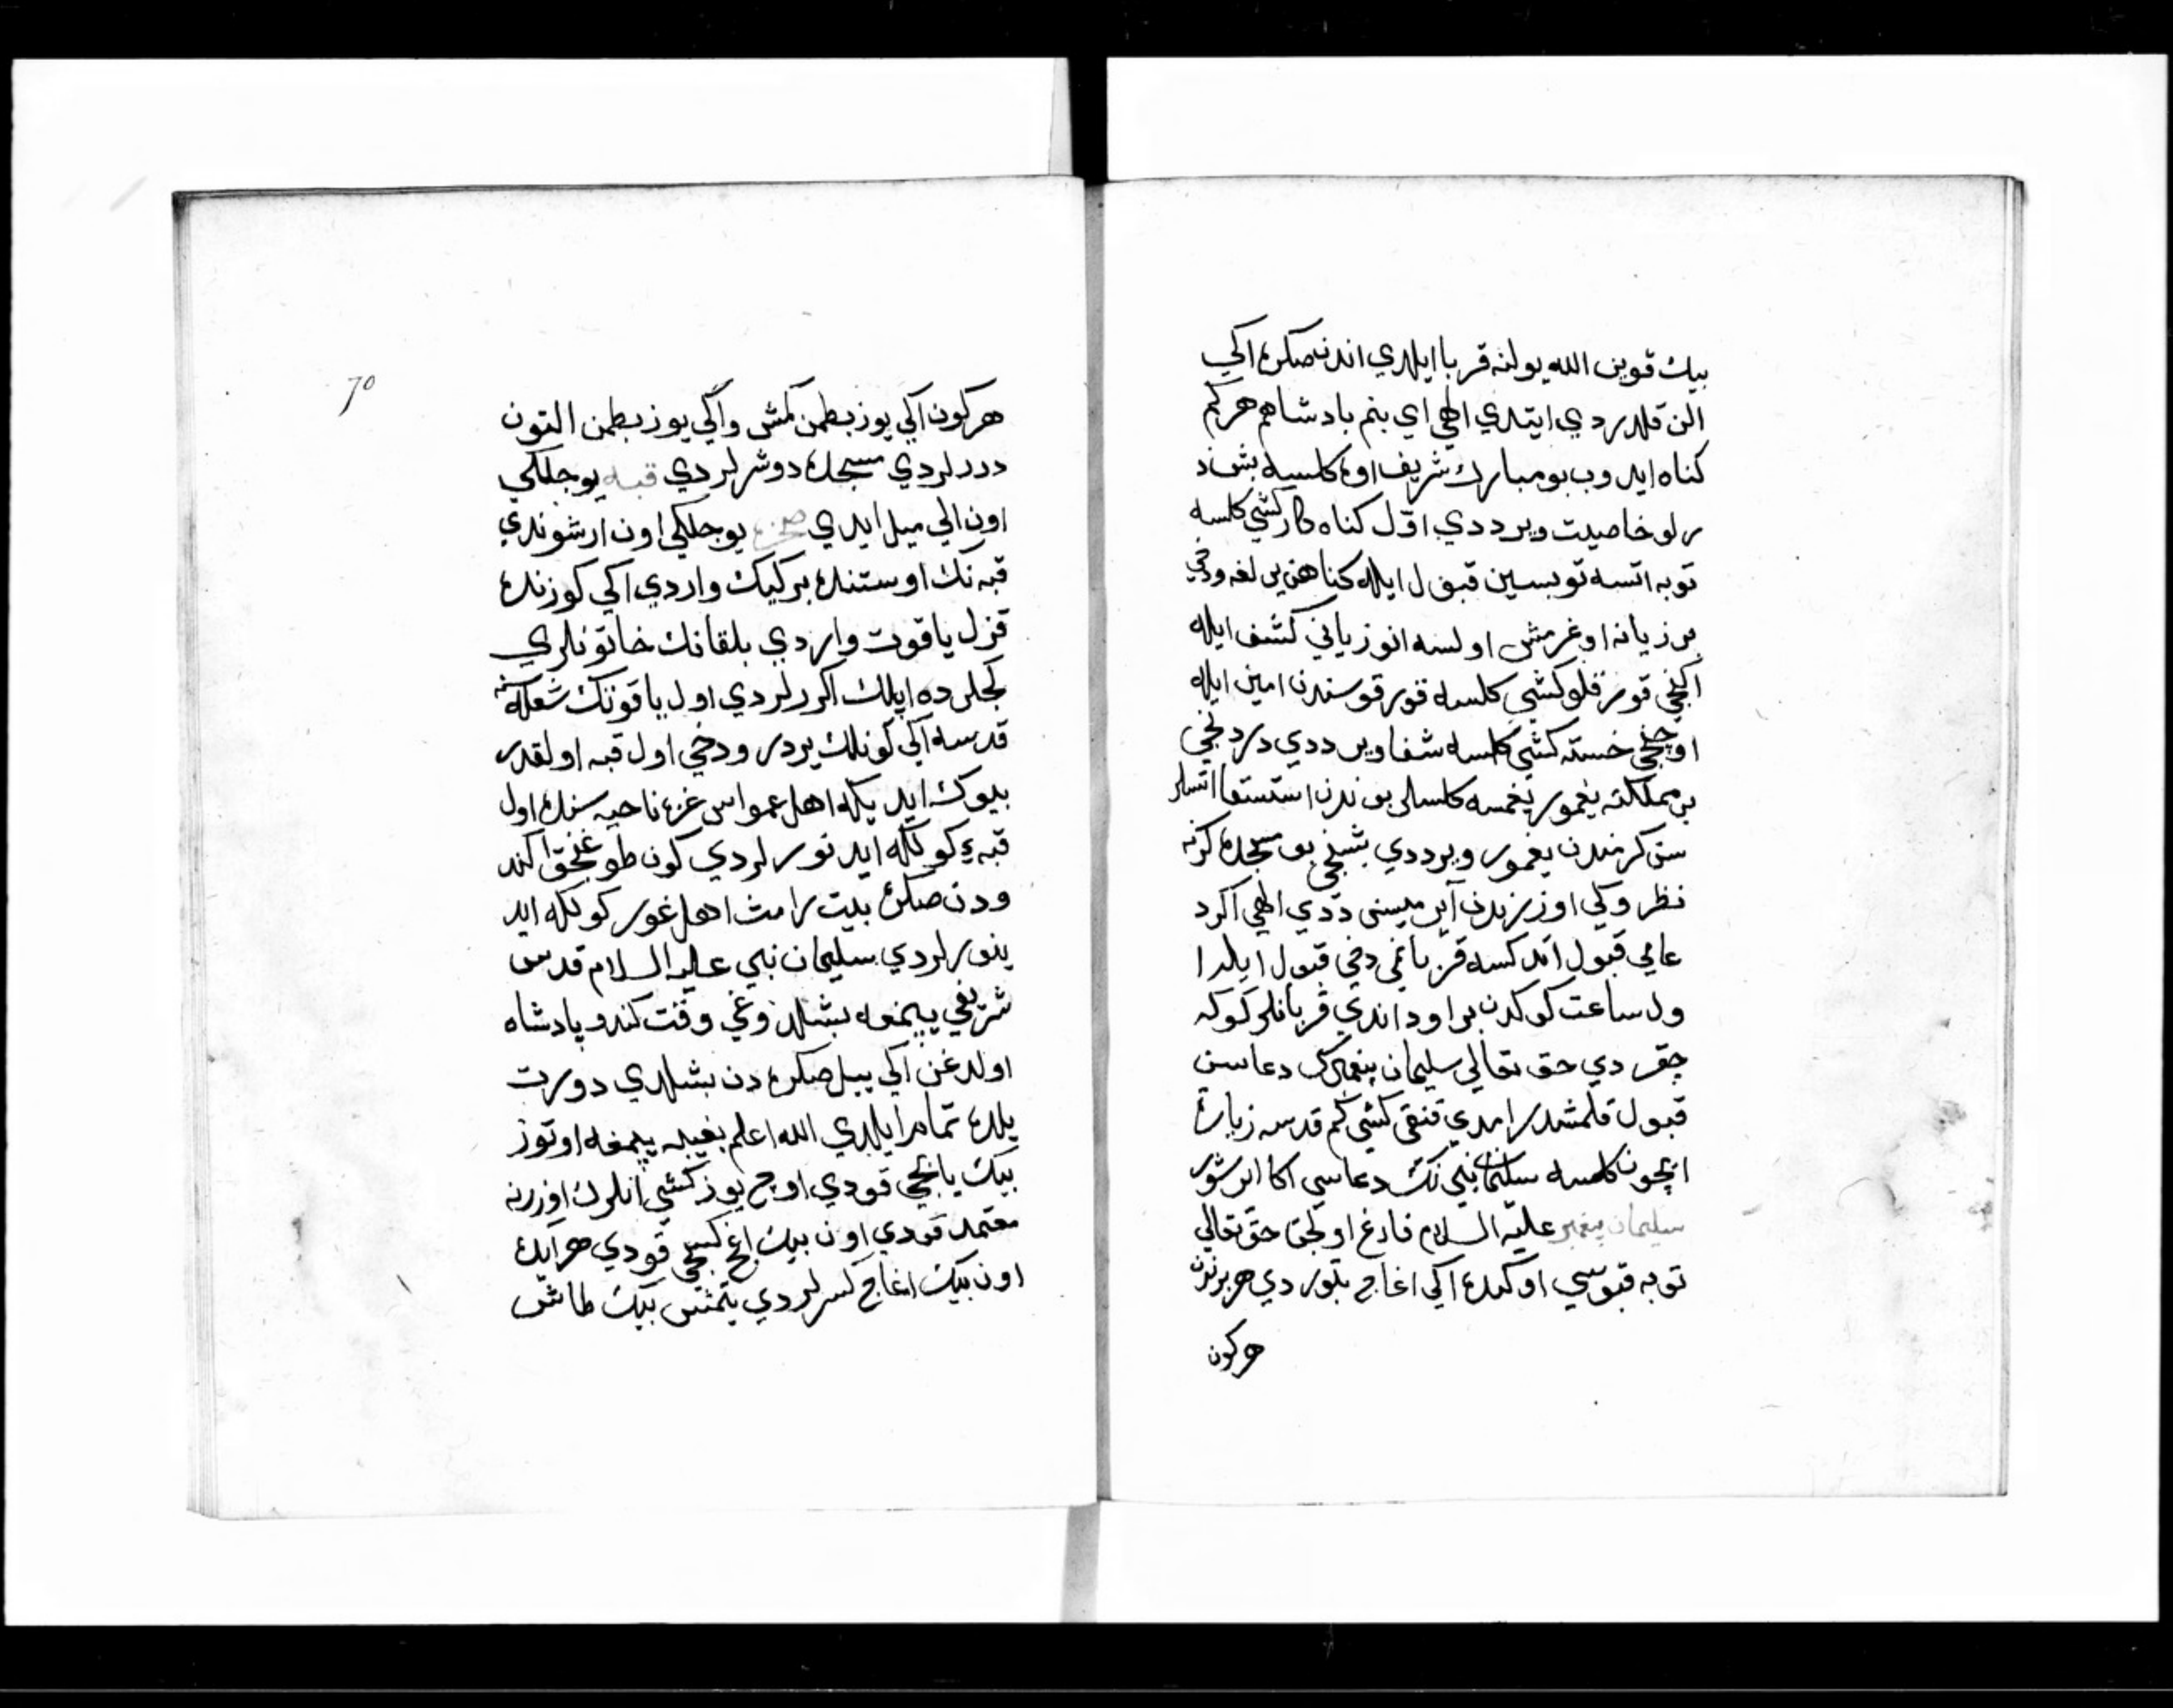 بيك قوين الله يولنه قربا ايلدي اندن صكره اكي
الن قلدردي ايتدي الهي اي بنم بادشاهم هركم
كناه ايدوب بو مبارك شريف اوه كلسه بش د
رلو خاصيت ويرددي اوّل كناه كار كشي كلسه
توبه اتسه توبسين قبول ايله كناهن يرلغه ودخي
بر زيانه اوغرمش اولسه انوز ياني كشف ايله
اكنجي قورقلو كشي كلسه قورقوسندن امين ايله
اوچنجي خسته كشي كلسه شفا وير ددي دردنجي
بر مملكته يغمور يغمسه كلسالر بوندن استسقا اتسلر
سن كرمندن يغمور ويرددي بشنجي بو مسجده كرنه
نظروكي اوزرندن آيرميسن ددي الهي اكر د
عامي قبول اندكسه قربانمي دخي قبول ايلد ا
ول ساعت كوكدن بر اود اندي قربانلر كوكه
چقردي حق تعالي سليمان پيغمبرك دعاسن
قبول قلمشدر امدي قنقي كشي كم قدسه زيارة
ايچون كلسه سليمان نبي نك دعاسي اكا ارشور
سليمان پيغمبر عليه السلام فارغ اولجق حق تعالي
توبه قپوسي اوكنده اكي اغاج بتوردي هر برندن
هر كون
70
هر كون اكي يوز بطمن كمش واكي يوز بطمن التون
دررلردي مسجده دوشرلردي قبه يوجلكي
اون اكي ميل ايدي صخره يوجلكي اون ارشوندي
قبه نك اوستنده بر كيك واردي اكي كوزنده
قزل ياقوت واردي بلقانك خاتونلري
كجلرده ايلك اكررلردي اول ياقوتك شعله سنه
قدسه اكي كونلك يردر ودخي اول قبه اولقدر
بيوك ايديكه اهل عمواس غزه ناحيه سنده اول
قبه ء كولكه ايدنورلردي كون طوغنجق اكند
ودن صكره بيت رامث اهل غور كولكه ايد
ينورلردي سليمان نبي عليه السلام قدس
شريفي يپمغه بشلدوغي وقت كندو پادشاه
اولدغن اكي ييل صكره دن بشلدي دورت
يلده تمام ايلدي الله اعلم بغيبه يپمغه اوتوز
بيك ياپجي قودي اوچ يوز كشي انلرك اوزرنه
معتمد قودي اون بيك اغج كسجي قودي هر آيده
اون بيك اغاج كسرلردي يتمش بيك طاش